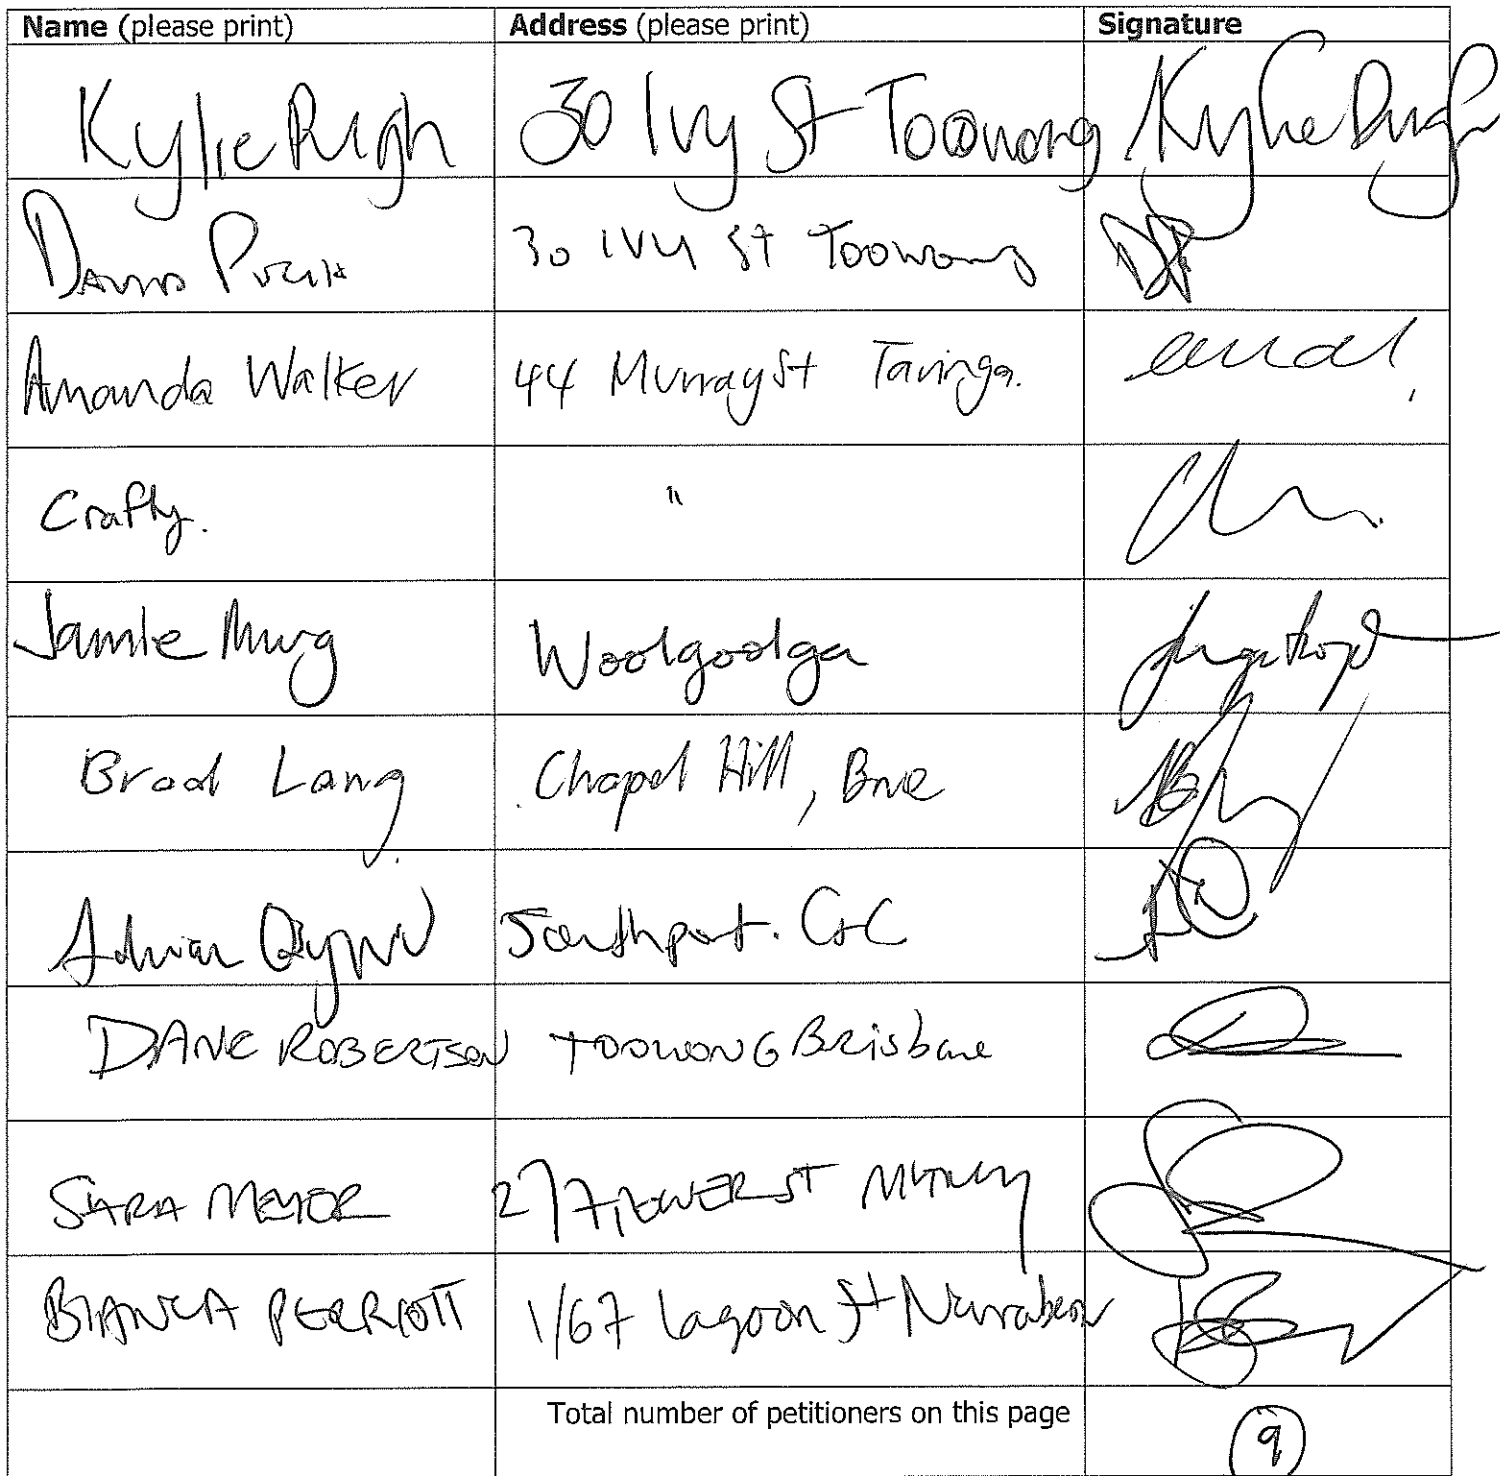 Name (please print) Address (please print) Signature
Kylie Pugh 30 Ivy St Toowong Kylie Pugh
David Pugh 30 IVY St Toowong
Amanda Walker 44 Murray St Taringa.
Crafty. "
Jamie Woolgoolga
Brad Lang Chapel Hill, Bne
Adrian Southport. GC
DANE ROBERTSON TOOWONG Brisbane
SARA MEYER ST
BIANCA PERROTT 1/67 Lagoon St Narrabeen
Total number of petitioners on this page 9